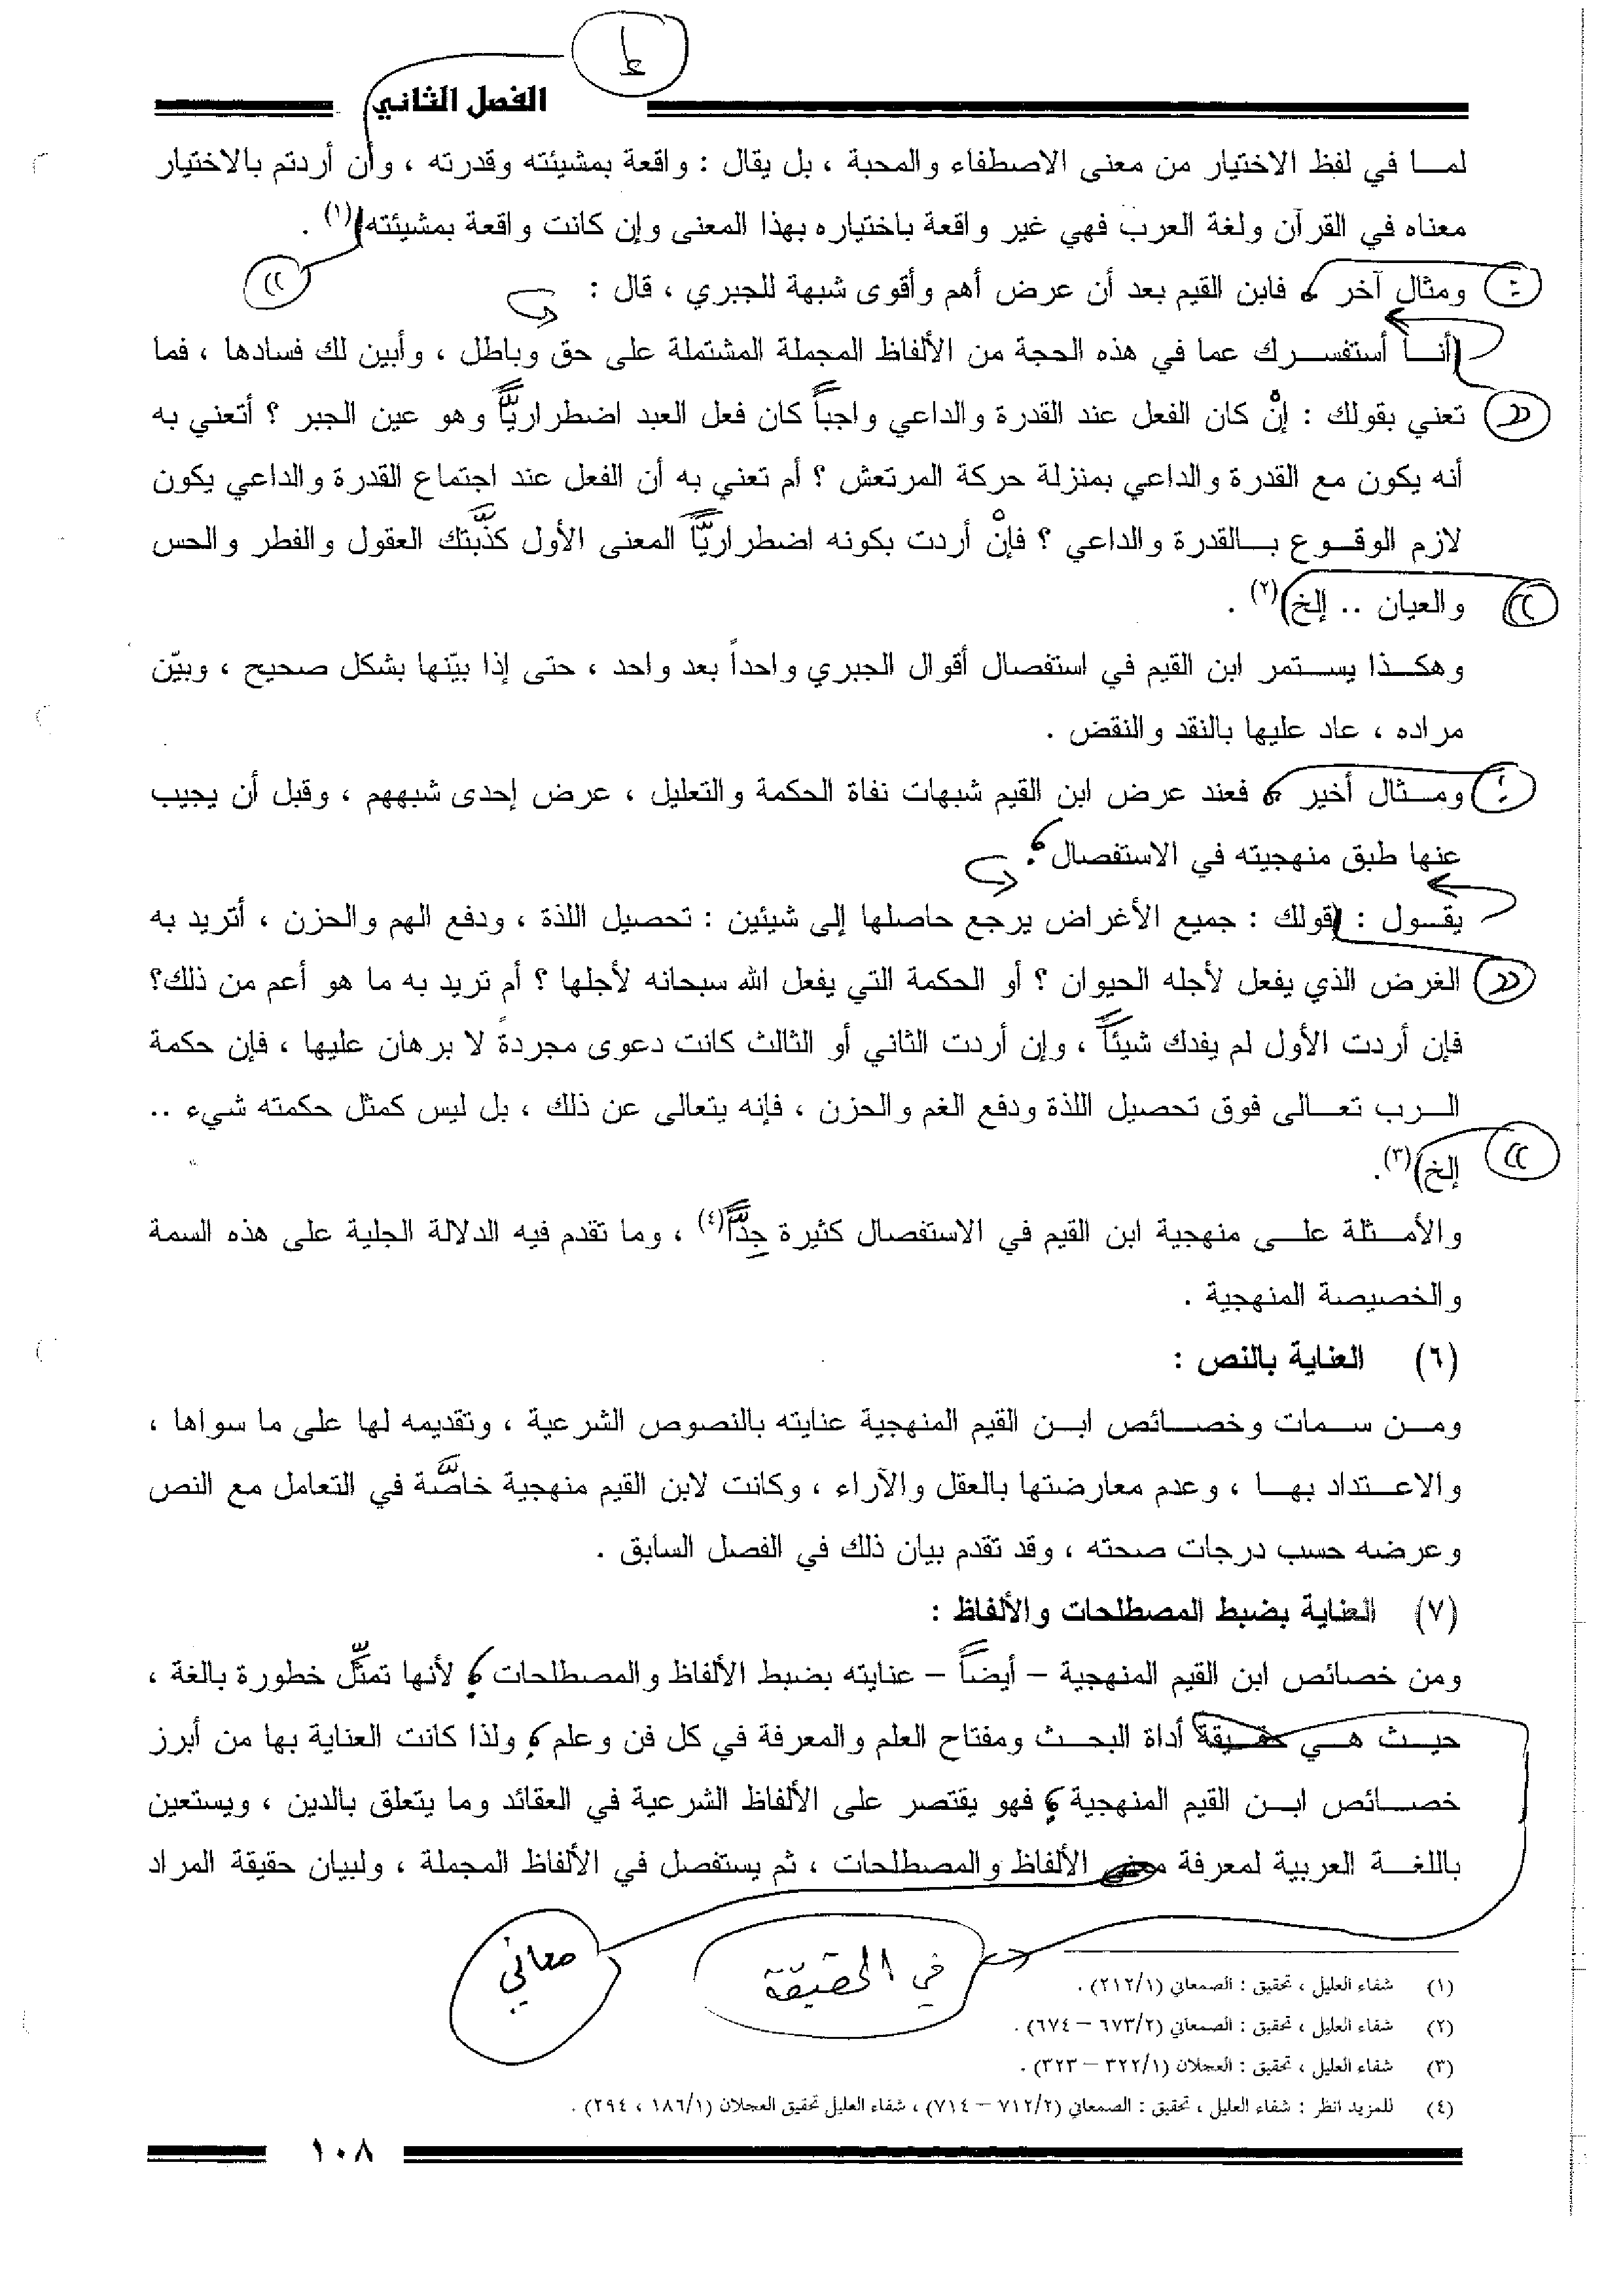 الفصل الثاني
لمـا في لفظ الاختيار من معنى الاصطفاء والمحبة ، بل يقال : واقعة بمشيئته وقدرته ، وأن أردتم بالاختيار
معناه في القرآن ولغة العرب فهي غير واقعة باختياره بهذا المعنى وإن كانت واقعة بمشيئته)(١) .
ومثال آخر ، فابن القيم بعد أن عرض أهم وأقوى شبهة للجبري ، قال :
(أنـا أستفسرك عما في هذه الحجة من الألفاظ المجملة المشتملة على حق وباطل ، وأبين لك فسادها ، فما
تعني بقولك : إنْ كان الفعل عند القدرة والداعي واجباً كان فعل العبد اضطراريّاً وهو عين الجبر ؟ أتعني به
أنه يكون مع القدرة والداعي بمنزلة حركة المرتعش ؟ أم تعني به أن الفعل عند اجتماع القدرة والداعي يكون
لازم الوقوع بالقدرة والداعي ؟ فإنْ أردت بكونه اضطراريّاً المعنى الأول كذَّبتك العقول والفطر والحس
والعيان .. إلخ)(٢) .
وهكذا يستمر ابن القيم في استفصال أقوال الجبري واحداً بعد واحد ، حتى إذا بيّنها بشكل صحيح ، وبيّن
مراده ، عاد عليها بالنقد والنقض .
ومثال أخير ، فعند عرض ابن القيم شبهات نفاة الحكمة والتعليل ، عرض إحدى شبههم ، وقبل أن يجيب
عنها طبق منهجيته في الاستفصال .
يقول : (قولك : جميع الأغراض يرجع حاصلها إلى شيئين : تحصيل اللذة ، ودفع الهم والحزن ، أتريد به
الغرض الذي يفعل لأجله الحيوان ؟ أو الحكمة التي يفعل الله سبحانه لأجلها ؟ أم تريد به ما هو أعم من ذلك؟
فإن أردت الأول لم يفدك شيئاً ، وإن أردت الثاني أو الثالث كانت دعوى مجردة لا برهان عليها ، فإن حكمة
الرب تعالى فوق تحصيل اللذة ودفع الغم والحزن ، فإنه يتعالى عن ذلك ، بل ليس كمثل حكمته شيء ..
إلخ)(٣).
والأمثلة على منهجية ابن القيم في الاستفصال كثيرة جِدّاً(٤) ، وما تقدم فيه الدلالة الجلية على هذه السمة
والخصيصة المنهجية .
(٦) العناية بالنص :
ومن سمات وخصائص ابن القيم المنهجية عنايته بالنصوص الشرعية ، وتقديمه لها على ما سواها ،
والاعتداد بها ، وعدم معارضتها بالعقل والآراء ، وكانت لابن القيم منهجية خاصَّة في التعامل مع النص
وعرضه حسب درجات صحته ، وقد تقدم بيان ذلك في الفصل السابق .
(٧) العناية بضبط المصطلحات والألفاظ :
ومن خصائص ابن القيم المنهجية – أيضاً – عنايته بضبط الألفاظ والمصطلحات ؛ لأنها تمثِّل خطورة بالغة ،
حيث هي حقيقة أداة البحث ومفتاح العلم والمعرفة في كل فن وعلم ، ولذا كانت العناية بها من أبرز
خصائص ابن القيم المنهجية ، فهو يقتصر على الألفاظ الشرعية في العقائد وما يتعلق بالدين ، ويستعين
باللغة العربية لمعرفة معنى الألفاظ والمصطلحات ، ثم يستفصل في الألفاظ المجملة ، ولبيان حقيقة المراد
في الحقيقة
معاني
(١) شفاء العليل ، تحقيق : الصمعاني (٢١٢/١) .
(٢) شفاء العليل ، تحقيق : الصمعاني (٦٧٣/٢ – ٦٧٤) .
(٣) شفاء العليل ، تحقيق : العجلان (٣٢٢/١ – ٣٢٣) .
(٤) للمزيد انظر : شفاء العليل ، تحقيق : الصمعاني (٧١٢/٢ – ٧١٤) ، شفاء العليل تحقيق العجلان (١٨٦/١ ، ٢٩٤) .
١٠٨